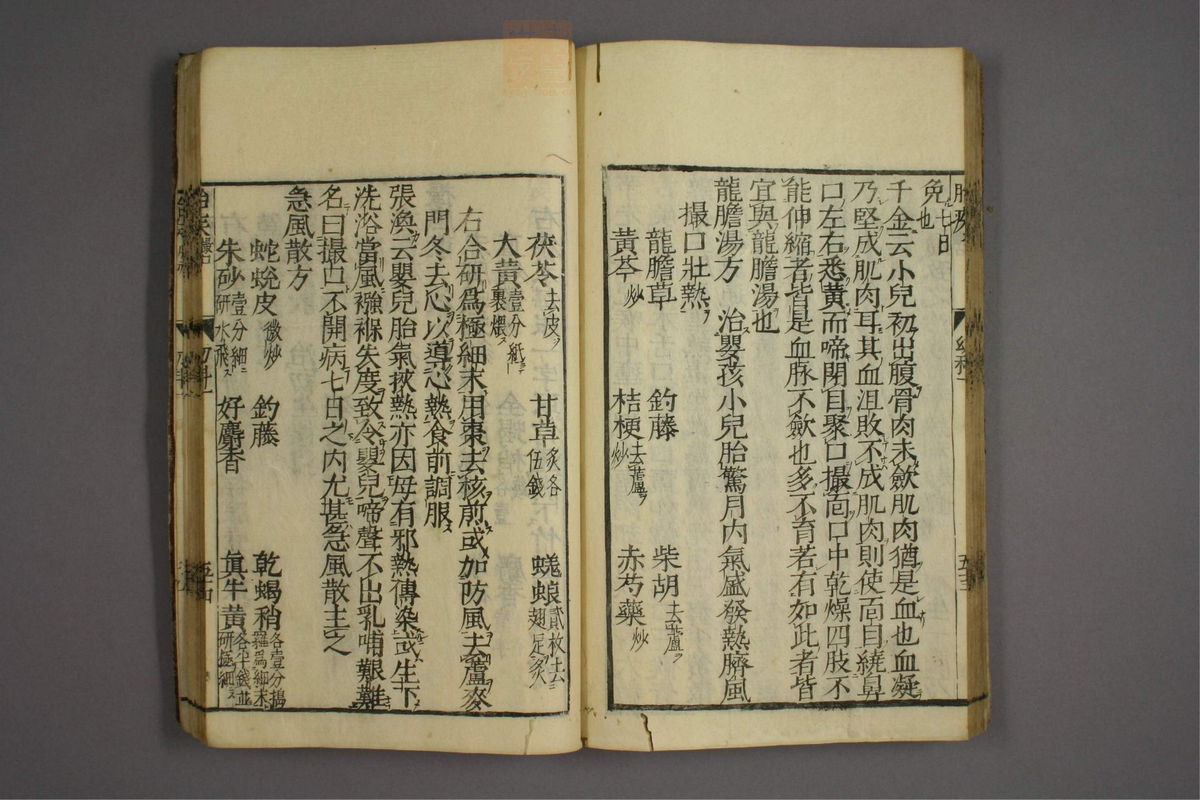 免七日
也
千金云小兒初出腹骨肉未歛肌肉猶是血也血凝
乃堅成肌肉耳其血沮敗不成肌肉則使面目繞鼻
口左右悉黃而啼閉目聚口撮面口中乾燥四肢不
能伸縮者皆是血脉不歛也多不育若有如此者皆
宜與龍膽湯也
龍膽湯方 治嬰孩小兒胎驚月内氣盛發熱臍風
撮口壯熱
龍膽草 釣藤 柴胡去蘆
黃芩炒 桔梗去蘆炒 赤芍藥炒
茯苓去皮 甘草炙各伍錢 蜣蜋貳枚去翅足炙
大黃壹分紙裹煨
右合研爲極細末用棗去核煎或加防風去蘆麥
門冬去心以導心熱食前調服
張渙云嬰兒胎氣挾熱亦因母有邪熱傳染或生下
洗浴當風襁褓失度致令嬰兒啼聲不出乳哺艱難
名曰撮口不開病七日之内尤甚急風散主之
急風散方
蛇蛻皮微炒 釣藤 乾蝎稍各壹分搗羅爲細末
朱砂壹分細研水飛 好麝香 眞牛黃各半錢並研極細